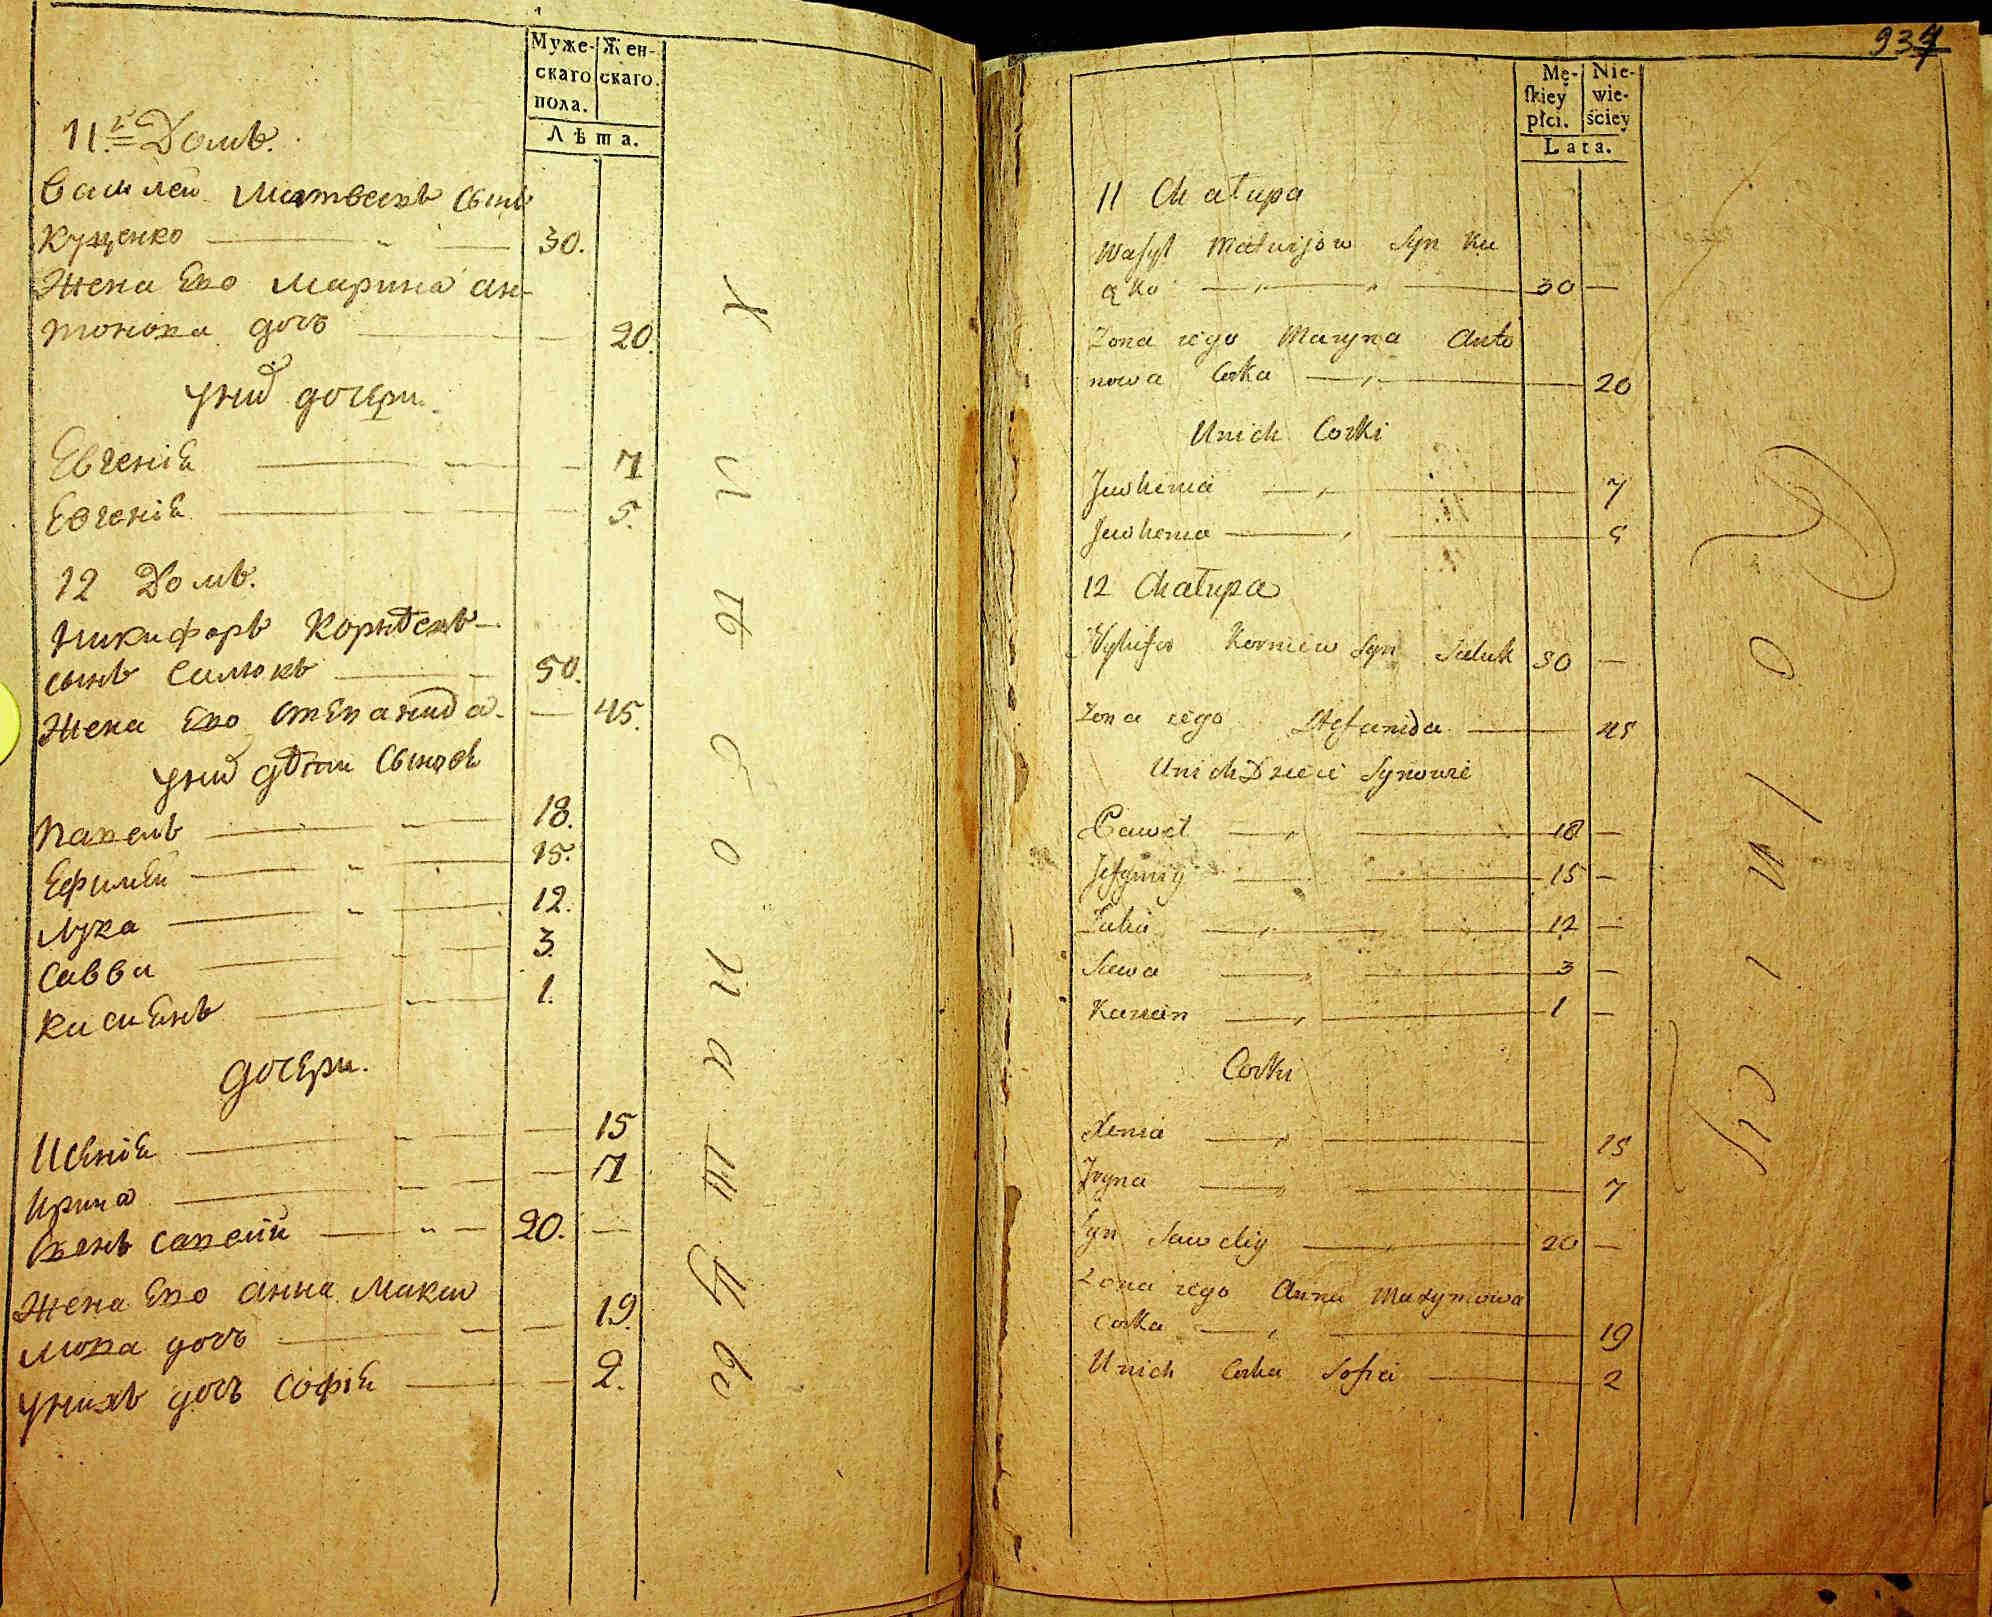 Муже-
скаго
пола.
Жен-
скаго.
Лѣта.
11.й Домъ.
Василей Матвеевъ сынъ
Куценко 30.
Жена Ево Марина ан-
тонова дочь 20.
У них дочери
Евгенiя 7
Евгенiя 5.
12 Домъ.
Никифоръ Корнѣевъ
сынъ Силюкъ 50.
Жена Ево Степанида 45.
У них дѣти Сыновя
Павелъ 18.
Ефимей 15.
Лука 12.
Савва 3.
Касиенъ 1.
дочери.
Ксенiя 15
Ирина 7
Савелий 20.
Жена Ево Анна Макси
мова дочь 19.
У нихъ дочь Софiя 2.
934
Mę-
ſkiey
płci.
Nie-
wie-
ściey
Lata.
11 Chałupa
Wasyl Matwijow Syn Ku
cko 30
Zona iego Maryna Anto
nowa Corka 20
Unich Corki
Jewhenia 7
Jewhenia 5
12 Chałupa
Nykifor Korniew Syn 50
Zona iego Stefanida 45
Unich Dzieci Synowie
Paweł 18
Jefymiy 15
12
Sawa 3
Kasian 1
Corki
Xenia 15
Iryna 7
Syn Saweliy 20
Zona iego Anna Maxymowa
Corka 19
Unich Corka Sofia 2